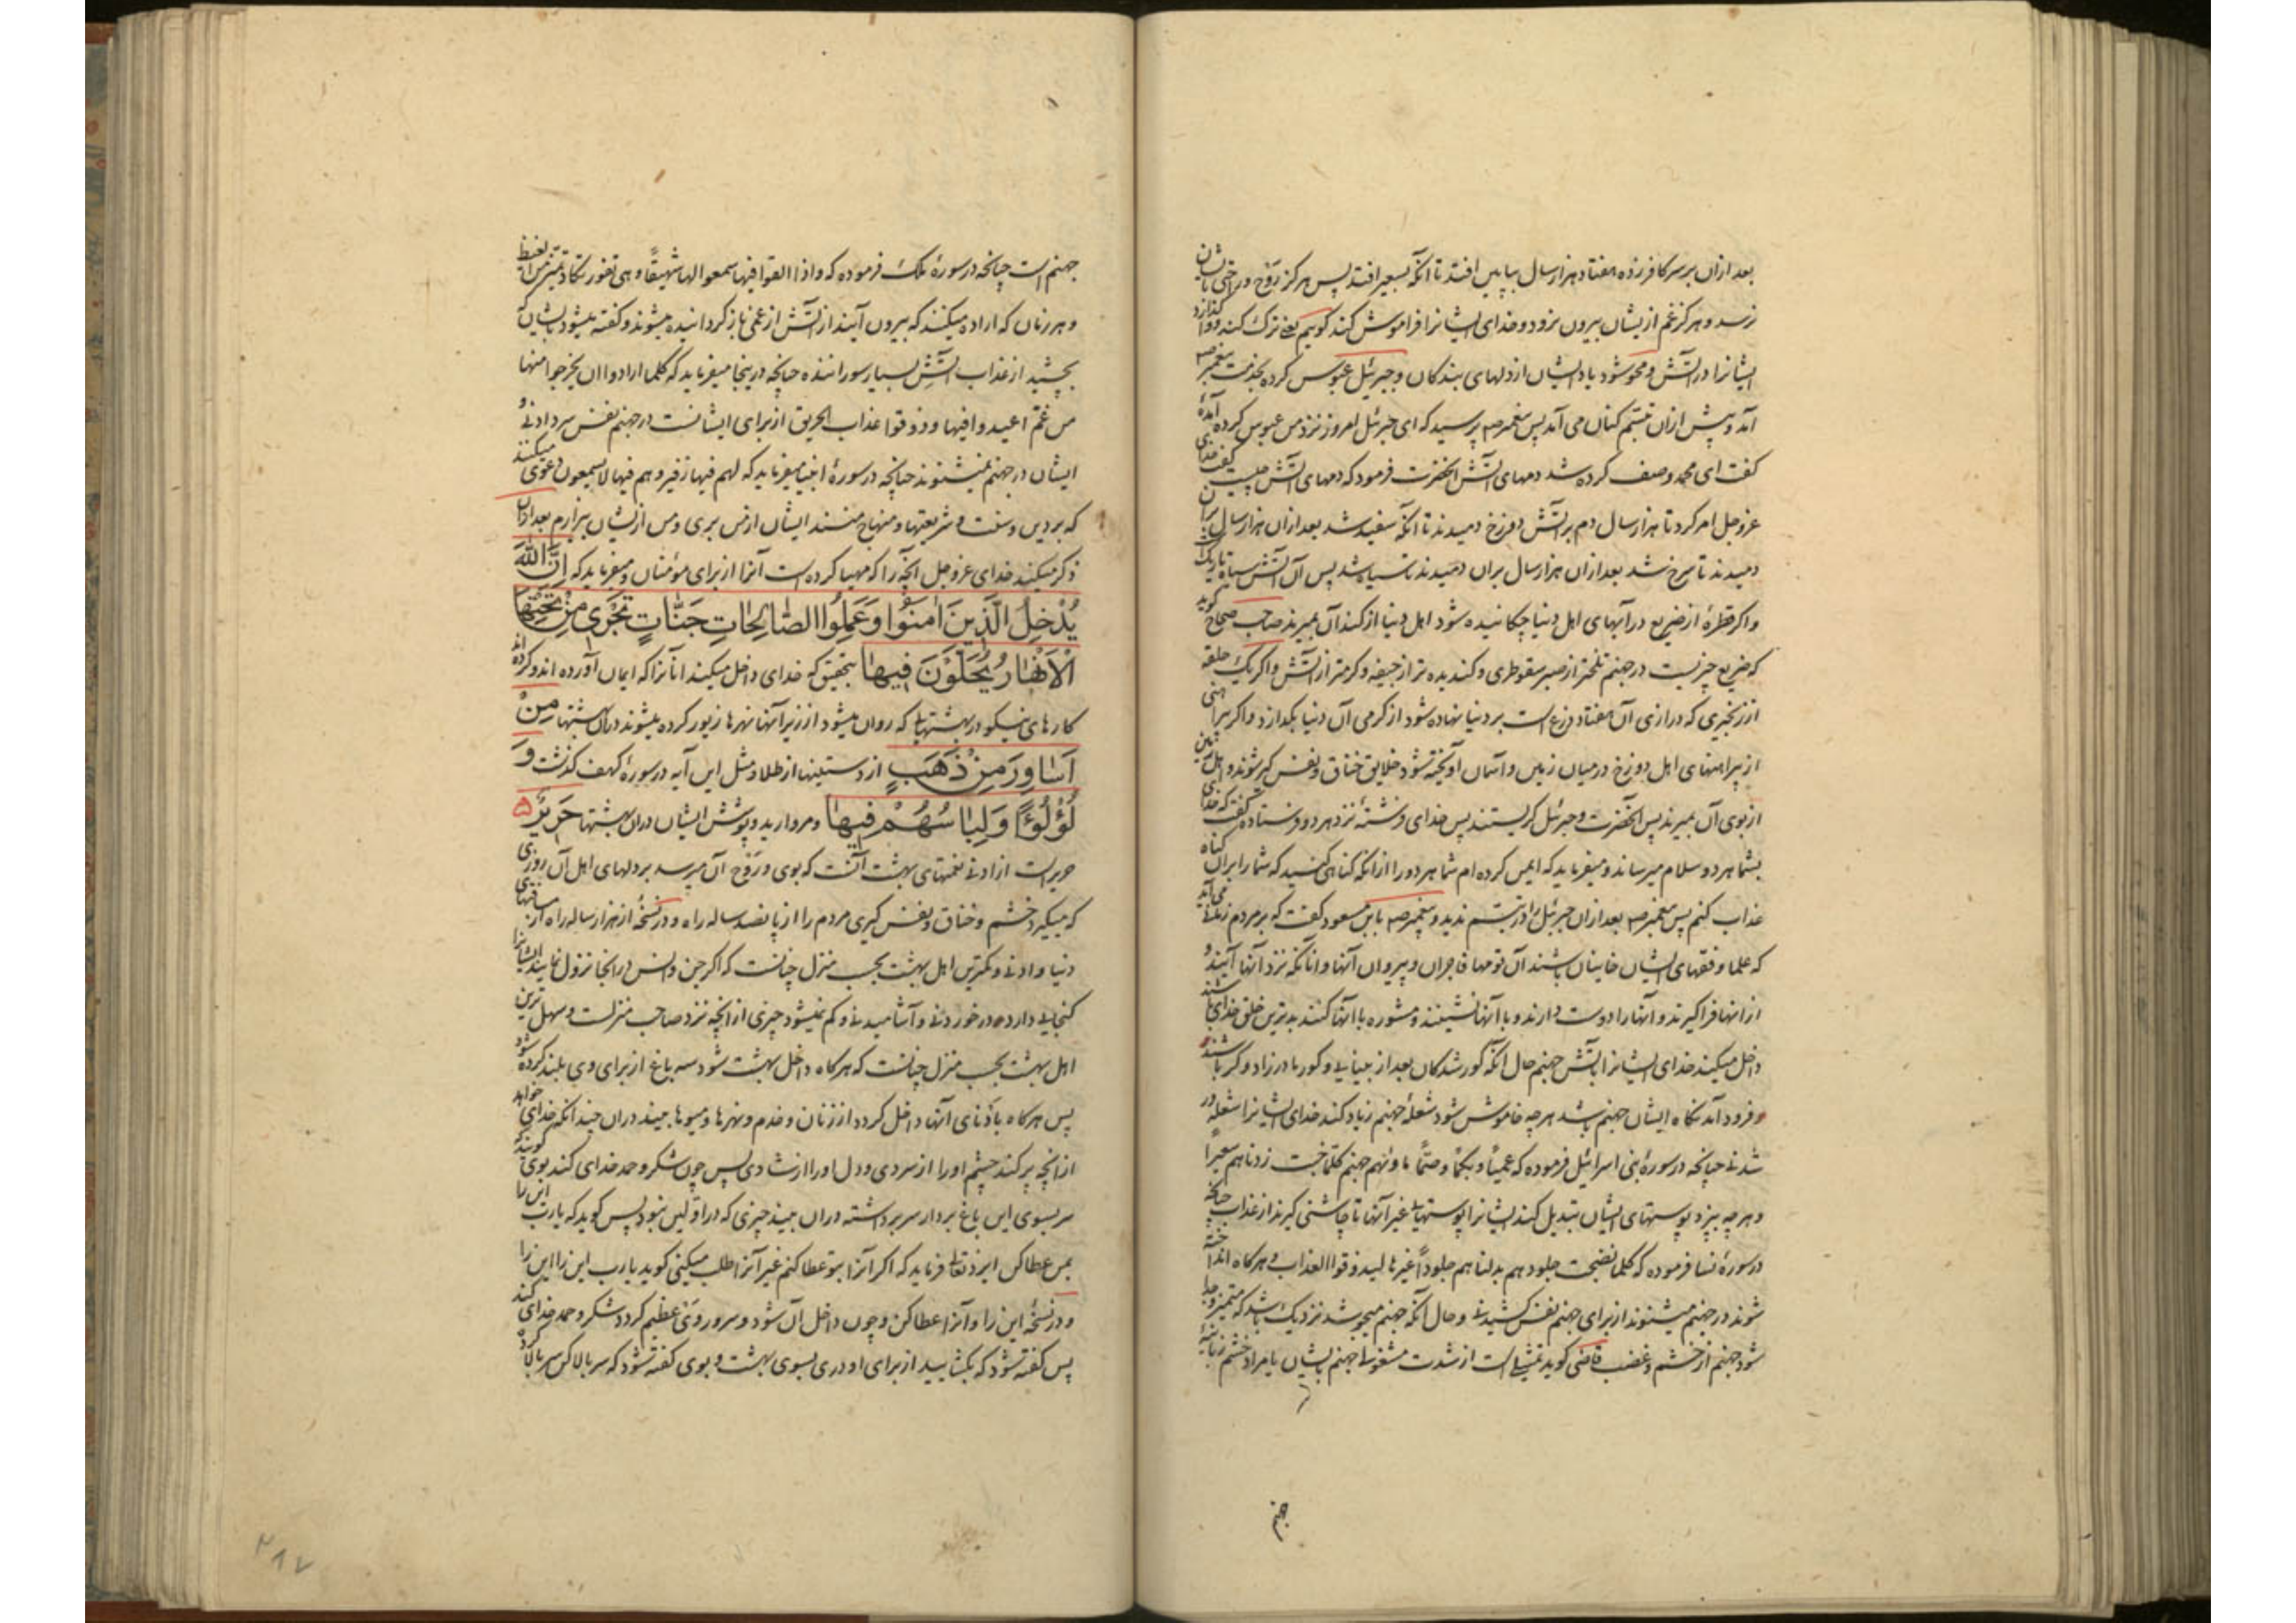 بعد ازان بر سر کافر زده هفتاد هزار سال بپایین افتد تا آنکه بسعیر افتد پس هرگز روح و راحتی بایشان
نرسد و هرگز غم از یشان بیرون نرود و خدای ایشانرا فراموش کند گوییم یعنی ترک کند و واگذارد
ایشانرا در آتش و محو شود یاد ایشان از دلهای بندکان و جبرئیل عبوس کرده بخدمت پیغمبر صم
آمد و پیش ازان تبسّم کنان می آمد پس پیغمبر صم پرسید که ای جبرئیل امروز نزد من عبوس کرده آمدهٔ
گفت ای محمد وصف کرده شد دمهای آتش آنحضرت فرمود که دمهای آتش چیست گفت خدای
عزوجل امر کرد تا هزار سال دم بر آتش دوزخ دمیدند تا آنکه سفید شد بعد ازان هزار سال بران
دمیدند تا سرخ شد بعد ازان هزار سال بران دمیدند تا سیاه شد پس آن آتش سیاه تاریکست
و اگر قطرهٔ از ضریع در آبهای اهل دنیا چکانیده شود اهل دنیا از گند آن بمیرند صاحب صحاح گوید
که ضریع چیزیست در جهنم تلختر از صبر سقوطری و گندیده تر از جیفه و گرمتر از آتش و اگر یک حلقه
از زنجیری که درازی آن هفتاد ذرع است بر دنیا نهاده شود از گرمی آن دنیا بگدازد و اگر پیراهنی
از پیراهنهای اهل دوزخ در میان زمین و آسمان آویخته شود خلایق خناق و نفس گیر شوند و اهل زمین
از بوی آن بمیرند پس آنحضرت و جبرئیل گریستند پس خدای فرشتهٔ نزد هر دو فرستاده گفت که خدای
بشما هر دو سلام میرساند و میفرماید که ایمن کرده ام شما هر دو را ازانکه گناهی کنید که شما را بران گناه
عذاب کنم پس پیغمبر صم بعد ازان جبرئیل را در تبسّم ندید و پیغمبر صم بابن مسعود گفت که بر مردم زمانی می آید
که علما و فقهای ایشان خاینان باشند آن قومها فاجران و پیروان آنها و انانکه نزد آنها آیند و
از انها فراگیرند و آنها را دوست دارند و با آنها نشینند و مشوره با آنها کنند بدترین خلق خدای باشند
داخل میکند خدای ایشانرا بآتش جهنم حال آنکه کور شدکان بعد از بینایی و کور مادرزاد و کر باشند
و فرود آمد نگاه ایشان جهنم باشد هر چه خاموش شود شعلهٔ جهنم زیاد کند خدای ایشانرا شعله ور
شدنی چنانچه در سورهٔ بنی اسرائیل فرموده که عمیًا و بکمًا و صمًّا ماویهم جهنم کلّما خبت زدناهم سعیرًا
و هر چه بپزد پوستهای ایشان تبدیل کند ایشانرا پوستهای غیر آنها تا چاشنی گیرند از عذاب چنانچه
در سورهٔ نسا فرموده که کلما نضجت جلودهم بدلناهم جلودًا غیرها لیذوقوا العذاب و هرگاه انداخته
شوند در جهنم میشنوند از برای جهنم نفس کشیدنی و حال آنکه جهنم میجوشد نزدیک باشد که متمیز و جدا
شود جهنم از خشم و غضب قاضی گوید تمثیلی است از شدت مشغولی جهنم بایشان یا مراد خشم زبانیهٔ
جهنم
جهنم است چنانچه در سورهٔ ملک فرموده که و اذا القوا فیها سمعوا لها شهیقًا و هی تفور تکاد تمیّز من الغیظ
و هر زمان که اراده میکنند که بیرون آیند از آتش از غمی باز گردانیده میشوند و گفته میشود بایشان که
بچشید از عذاب آتش بسیار سوراننده چنانچه درینجا میفرماید که کلما ارادوا ان یخرجوا منها
من غمّ اعیدوا فیها و ذوقوا عذاب الحریق از برای ایشانست در جهنم نفس سردادنی و
ایشان در جهنم نمیشنوند چنانچه در سورهٔ انبیا میفرماید که لهم فیها زفیر و هم فیها لا یسمعون دعوی میکنند
که بر دین و سنت و شریعتها و منهاج منند ایشان از من بری و من از یشان بیزارم بعد ازان
ذکر میکند خدای عزوجل آنچه را که مهیا کرده است آنرا از برای مؤمنان و میفرماید که اِنَّ اللّٰهَ
یُدْخِلُ الَّذینَ اٰمَنُوا وَ عَمِلُوا الصّٰالِحٰاتِ جَنّٰاتٍ تَجْری مِنْ تَحْتِهَا
الْاَنْهٰارُ یُحَلَّوْنَ فیهٰا بتحقیق که خدای داخل میکند آنانرا که ایمان آورده اند و کرده اند
کارهای نیکو در بهشتهایی که روان میشود از زیر آنها نهرها زیور کرده میشوند در ان بهشتها مِنْ
اَسٰاوِرَ مِنْ ذَهَبٍ از دستینها از طلا و مثل این آیه در سورهٔ کهف گذشت وَ
لُؤْلُؤًا وَ لِبٰاسُهُمْ فیهٰا و مروارید و پوشش ایشان دران بهشتها حَریرٌ ۵
حریر است از ادنی نعمتهای بهشت آنست که بوی و روح آن میرسد بر دلهای اهل آن روزی
که میگیرد خشم و خناق و نفس گیری مردم را از پانصد ساله راه و در نسخهٔ از هزار ساله راه از مسافتهای
دنیا و ادنی و کمترین اهل بهشت بحسب منزل چنانست که اگر جن و انس در انجا نزول نمایند ایشانرا
گنجایی دارد در خوردنی و آشامیدنی و کم نمیشود چیزی از آنچه نزد صاحب منزلست و سهل ترین
اهل بهشت بحسب منزل چنانست که هرگاه داخل بهشت شود سه باغ از برای وی بلند کرده شود
پس هرگاه بادنای آنها داخل گردد از زنان و خدم و نهرها و میوها بیند دران چندانکه خدای خواهد
از انچه پر کند چشم او را از سردی و دل او را از شادی پس چون شکر و حمد خدای کند بوی گویند که
سر بسوی این باغ بردار سر برداشته دران بیند چیزی که در اولین نبود پس گوید که یارب این را
بمن عطا کن ایزد تعالی فرماید که اگر آنرا بتو عطا کنم غیر آنرا طلب میکنی گوید یارب این را این را
و در نسخهٔ این را و آنرا عطا کن و چون داخل آن شود و سرور وی عظیم گردد شکر و حمد خدای کند
پس گفته شود که بگشایید از برای او دری بسوی بهشت و بوی گفته شود که سر بالا کن سر بالا کرده
۲۸۷